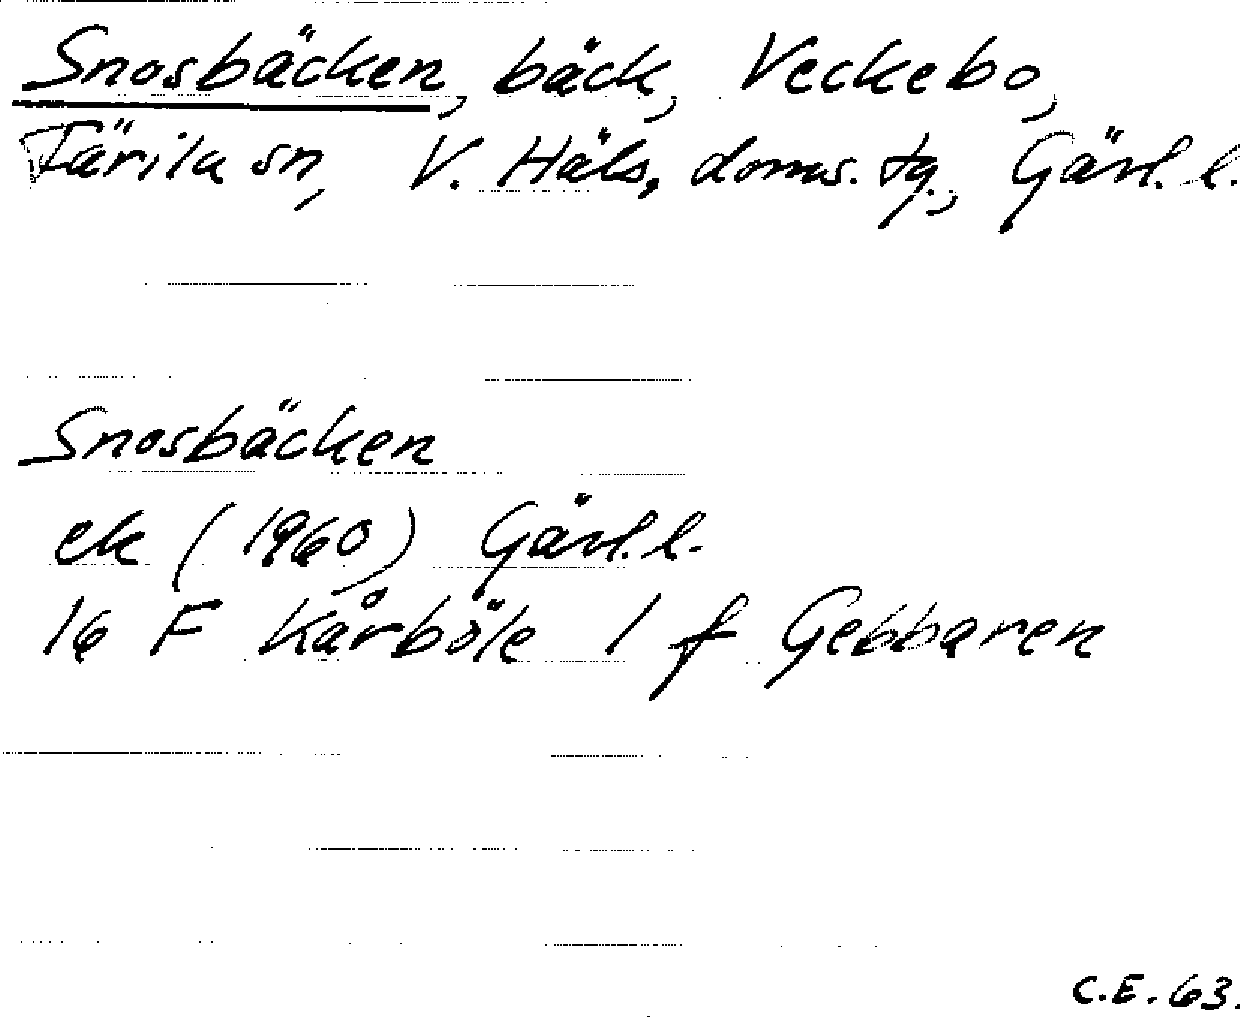 Snosbäcken, bäck, Veckebo,
Färila sn, V. Häls. doms. tg., Gävl. l.
Snosbäcken
ek (1960) Gävl. l.
16 F Kårböle 1 f Gebbaren
C.E. 63.